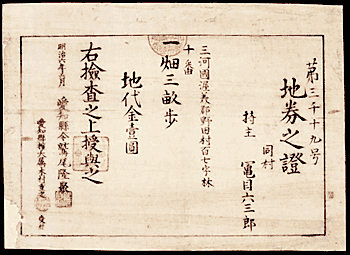 第三千十九号
地券之證
同村
持主 冨目六三郎
三河國渥美郡野田村百七字林
十番
一畑三畝歩
地代金壹圓
右撿査之上授與之
明治六年三月 愛知縣令鷲尾隆聚
愛知縣